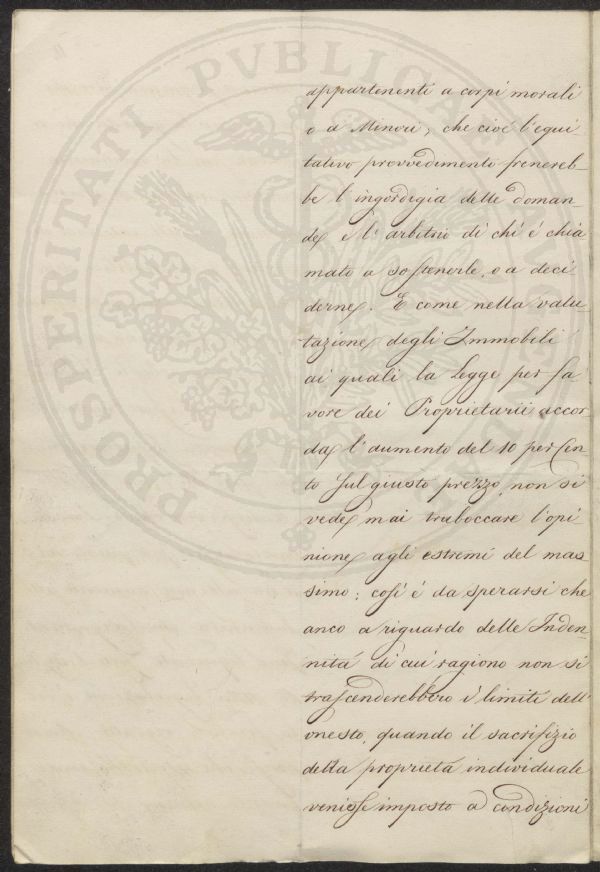 appartenenti a corpi morali
o a Minori, che cioè l'equi
tativo provvedimento frenereb-
be l'ingordigia delle doman-
de, e l'arbitrio di chi é chia
mato a sostenerle, o a deci
derne. E come nella valu-
tazione degli Immobili
ai quali la Legge per fa
vore dei Proprietarii accor
da l'aumento del 10 per Cen
to sul giusto prezzo, non si
vede mai traboccare l'opi
nione agli estremi del mas
simo; così é da sperarsi che
anco a riguardo delle Inden-
nitá di cui ragiono non si
trascenderebbero i limiti dell'
onesto, quando il sacrifizio
della proprietá individuale
venisse imposto a condizioni
PROSPERITATI PVBLICAE